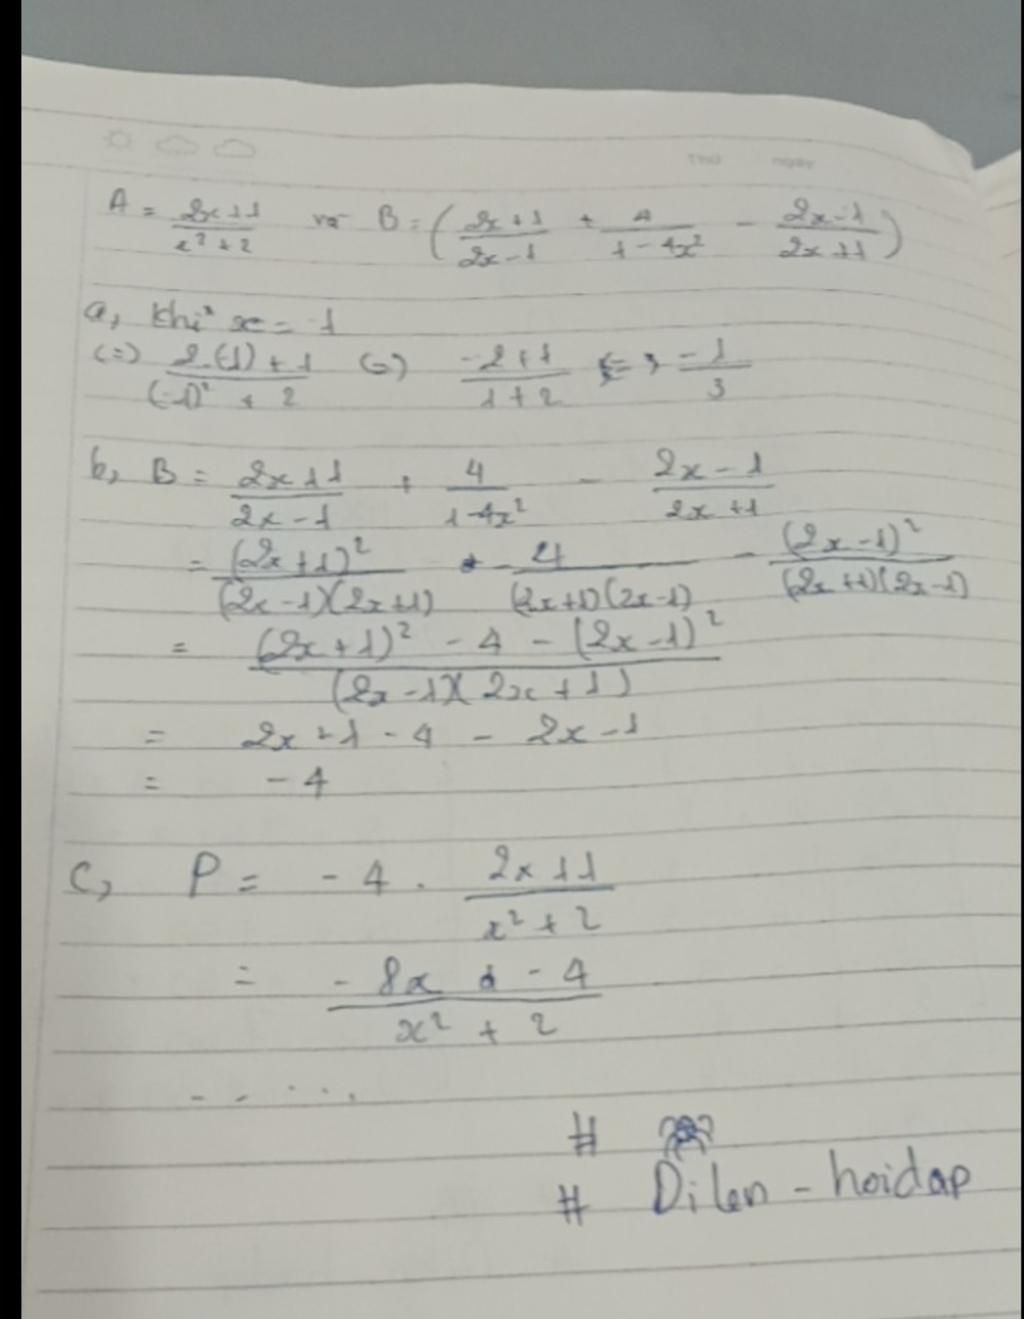 THỨ NGÀY
A = \frac{2x+1}{x²+2} và B = (\frac{2x+1}{2x-1} + \frac{4}{1-4x²} - \frac{2x-1}{2x+1})
a, khi x = -1
(=) \frac{2.(-1)+1}{(-1)²+2} (=) \frac{-2+1}{1+2} (=) \frac{-1}{3}
b, B = \frac{2x+1}{2x-1} + \frac{4}{1-4x²} - \frac{2x-1}{2x+1}
= \frac{(2x+1)²}{(2x-1)(2x+1)} - \frac{4}{(2x+1)(2x-1)} - \frac{(2x-1)²}{(2x+1)(2x-1)}
= \frac{(2x+1)² - 4 - (2x-1)²}{(2x-1)(2x+1)}
= 2x+1 - 4 - 2x-1
= -4
c, P = -4 . \frac{2x+1}{x²+2}
= \frac{-8x - 4}{x²+2}
- - . . .
#
# Dilen - hoidap